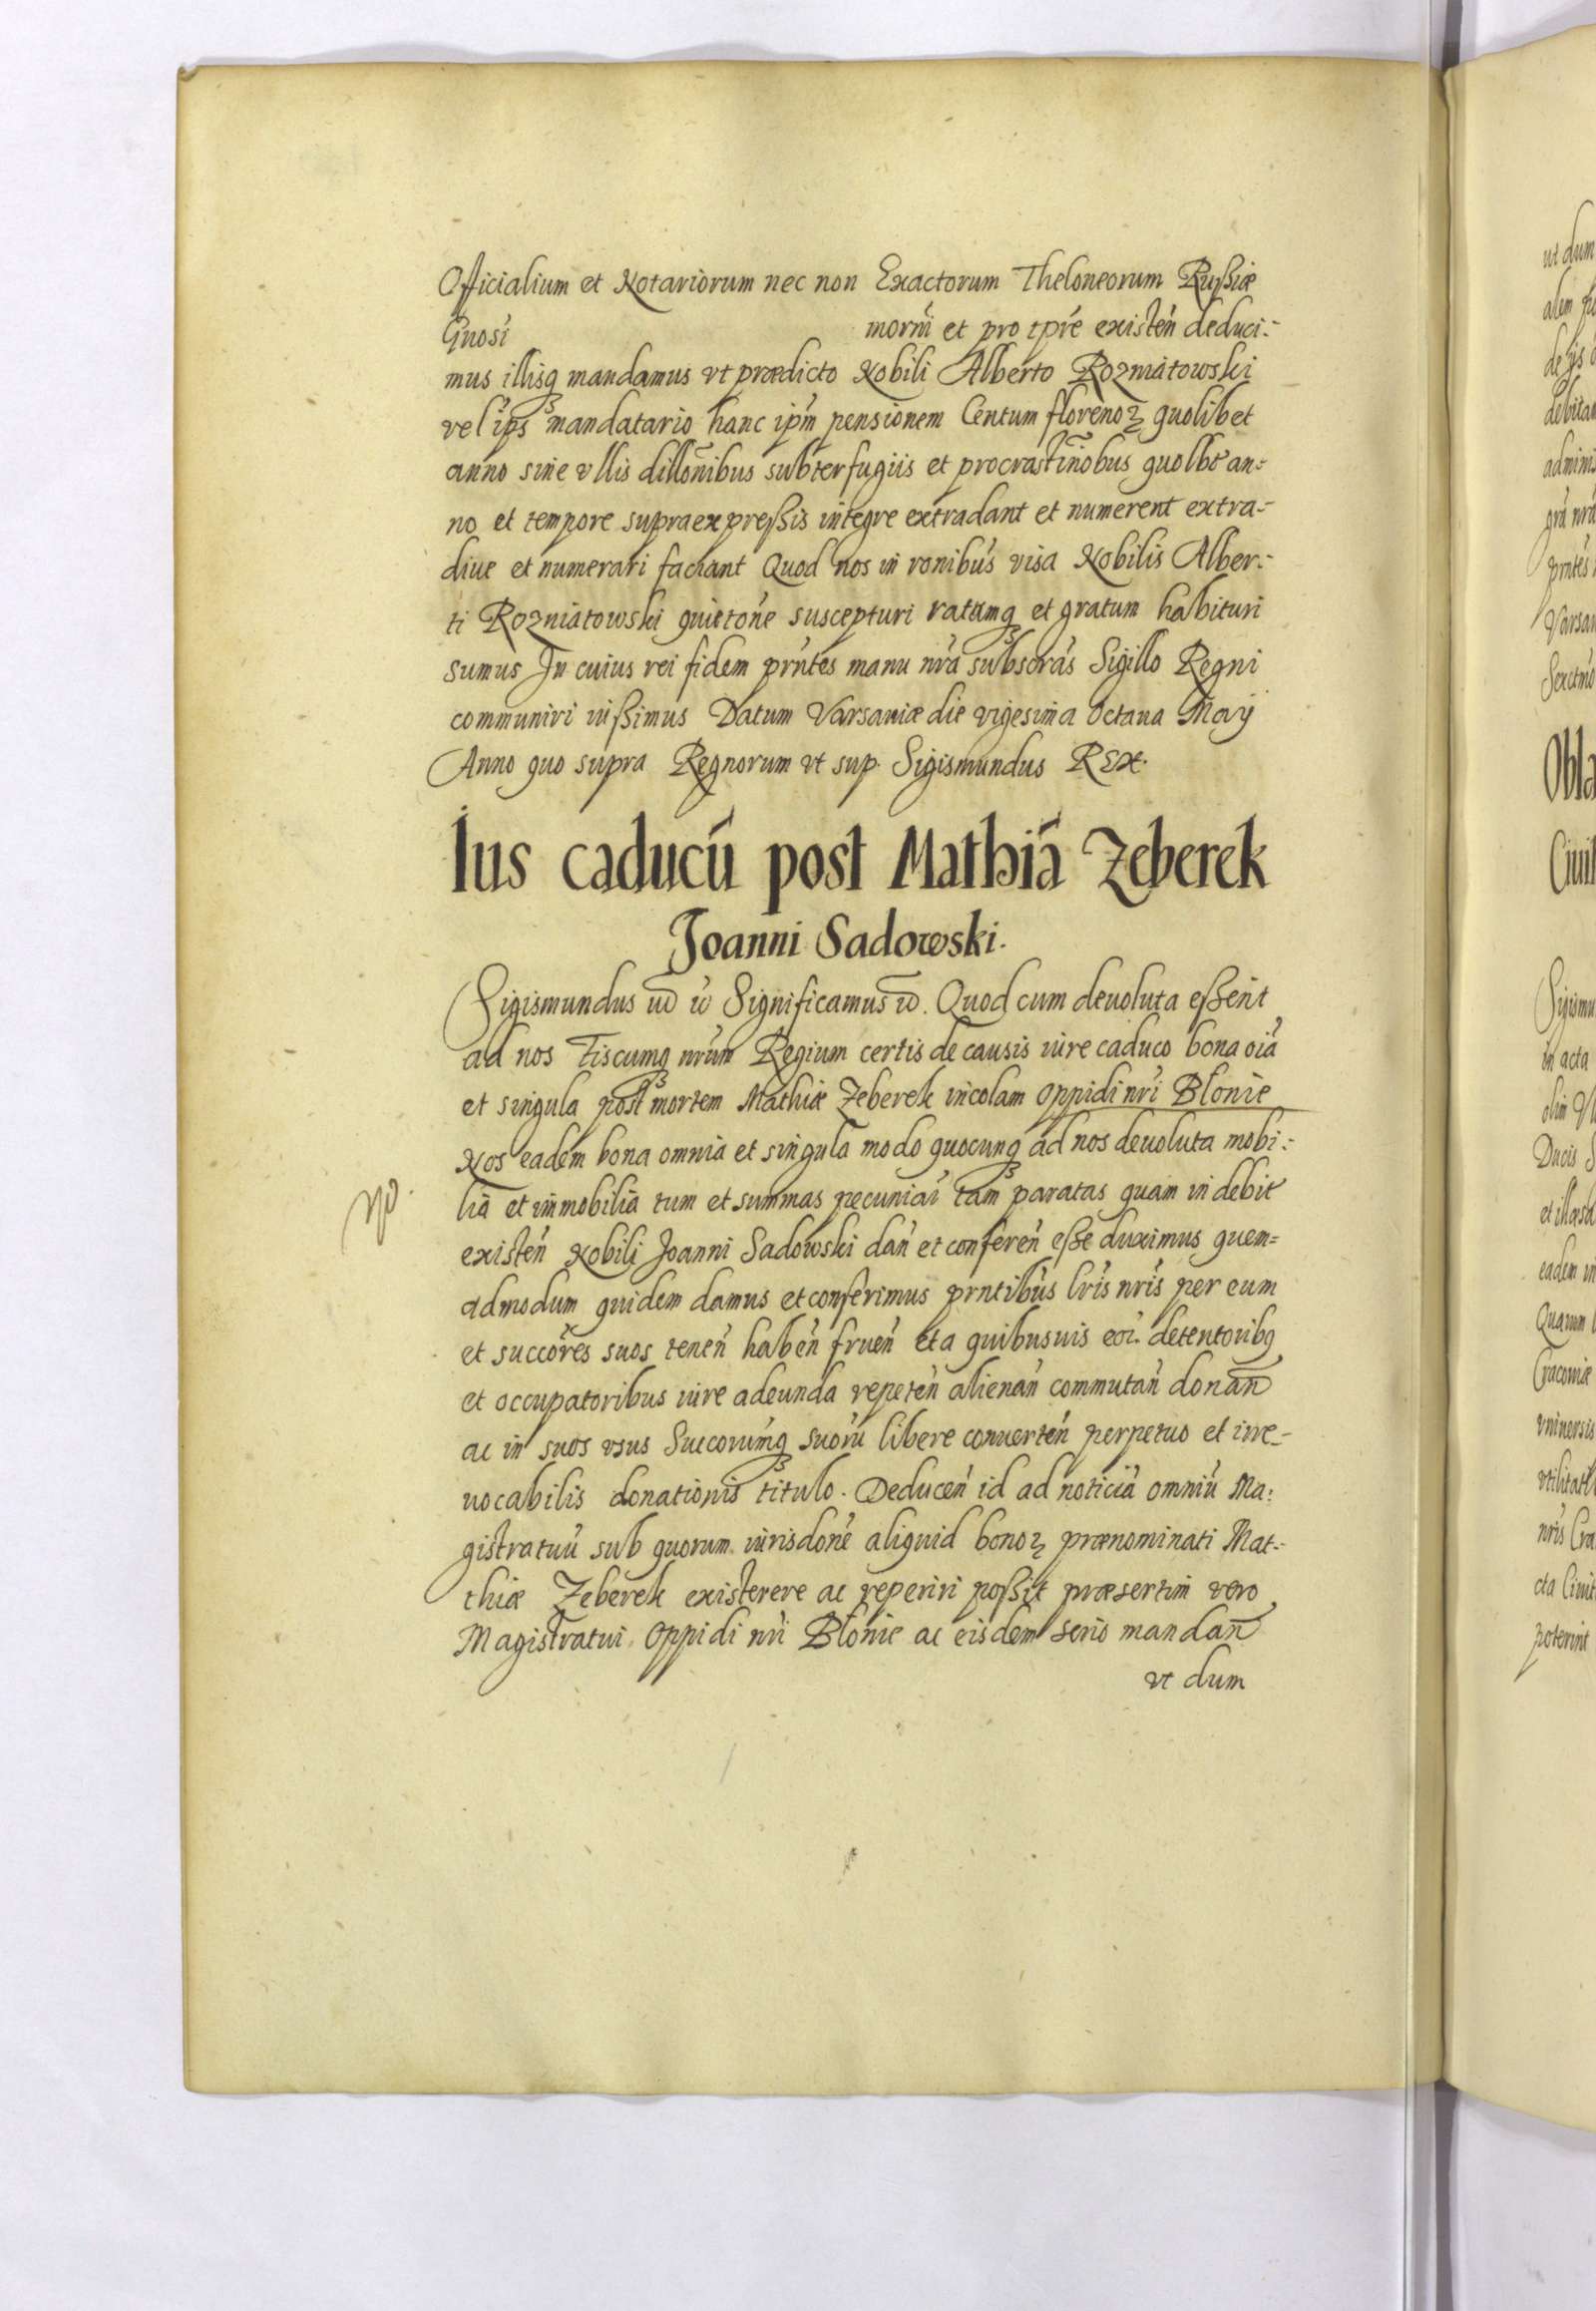 Officialium et Notariorum nec non Exactorum Theloneorum Rußiæ
Gnosi morm̃ et pro tpr̃e existeñ deduci:-
mus illisq3 mandamus vt prædicto Nobili Alberto Rozniatowski
vel ips̃3 mandatario hanc ipm̃ pensionem Centum florenoꝝ quolibet
anno sine vllis dillõnibus subterfugiis et procrastinõbus quolbt an:-
no et tempore supraexpreßis integre extradant et numerent extra-
diue et numerari faciant Quod nos in ronibus̃ visa Nobilis Alber:-
ti Rozniatowski quietone̾ suscepturi ratumq3 et gratum habituri
sumus In cuius rei fidem prñtes manu nrã subscras̃ Sigillo Regni
communiri iußimus Datum Varsauiæ die vigesima Octaua Maÿ
Anno quo supra Regnorum vt sup. Sigismundus REX.
Ius caducũ post Mathiã Zeberek
Joanni Sadowski.
Sigismundus Significamus. Quod cum deuoluta eßent
ad nos Fiscumq3 nrũm Regium certis de causis iure caduco bona oiã
et singula post mortem Mathiæ Zeberek incolam Oppidi nri̾ Blonie
Nos eadem bona omnia et singula modo quocunq3 ad nos deuoluta mobi:-
lia et immobilia tum et summas pecuniaı̃ tam paratas quam in debit
existeñ Nobili Joanni Sadowski dañ et confereñ eße duximus quem=
admodum quidem damus et conferimus prntibus̃ lris̃ nris̃ per eum
et succores̃ suos teneñ habeñ frueñ et a quibusuis eoı̃. detentoribꝫ
et occupatoribus iure adeunda repeteñ alienañ commutañ donañ
ac in suos vsus Succorum̃q3 suorũ libere conuerteñ perpetuo et irre-
uocabilis donationis titulo. Deduceñ id ad noticiã omniũ Ma:
gistratuũ sub quorum iurisdone̾ aliquid bonoꝝ prænominati Mat:-
thiæ Zeberek existerere ac reperiri poßit præsertim vero
Magistratui Oppidi nri̾ Blonie ac eisdem serio mandañ
vt dum